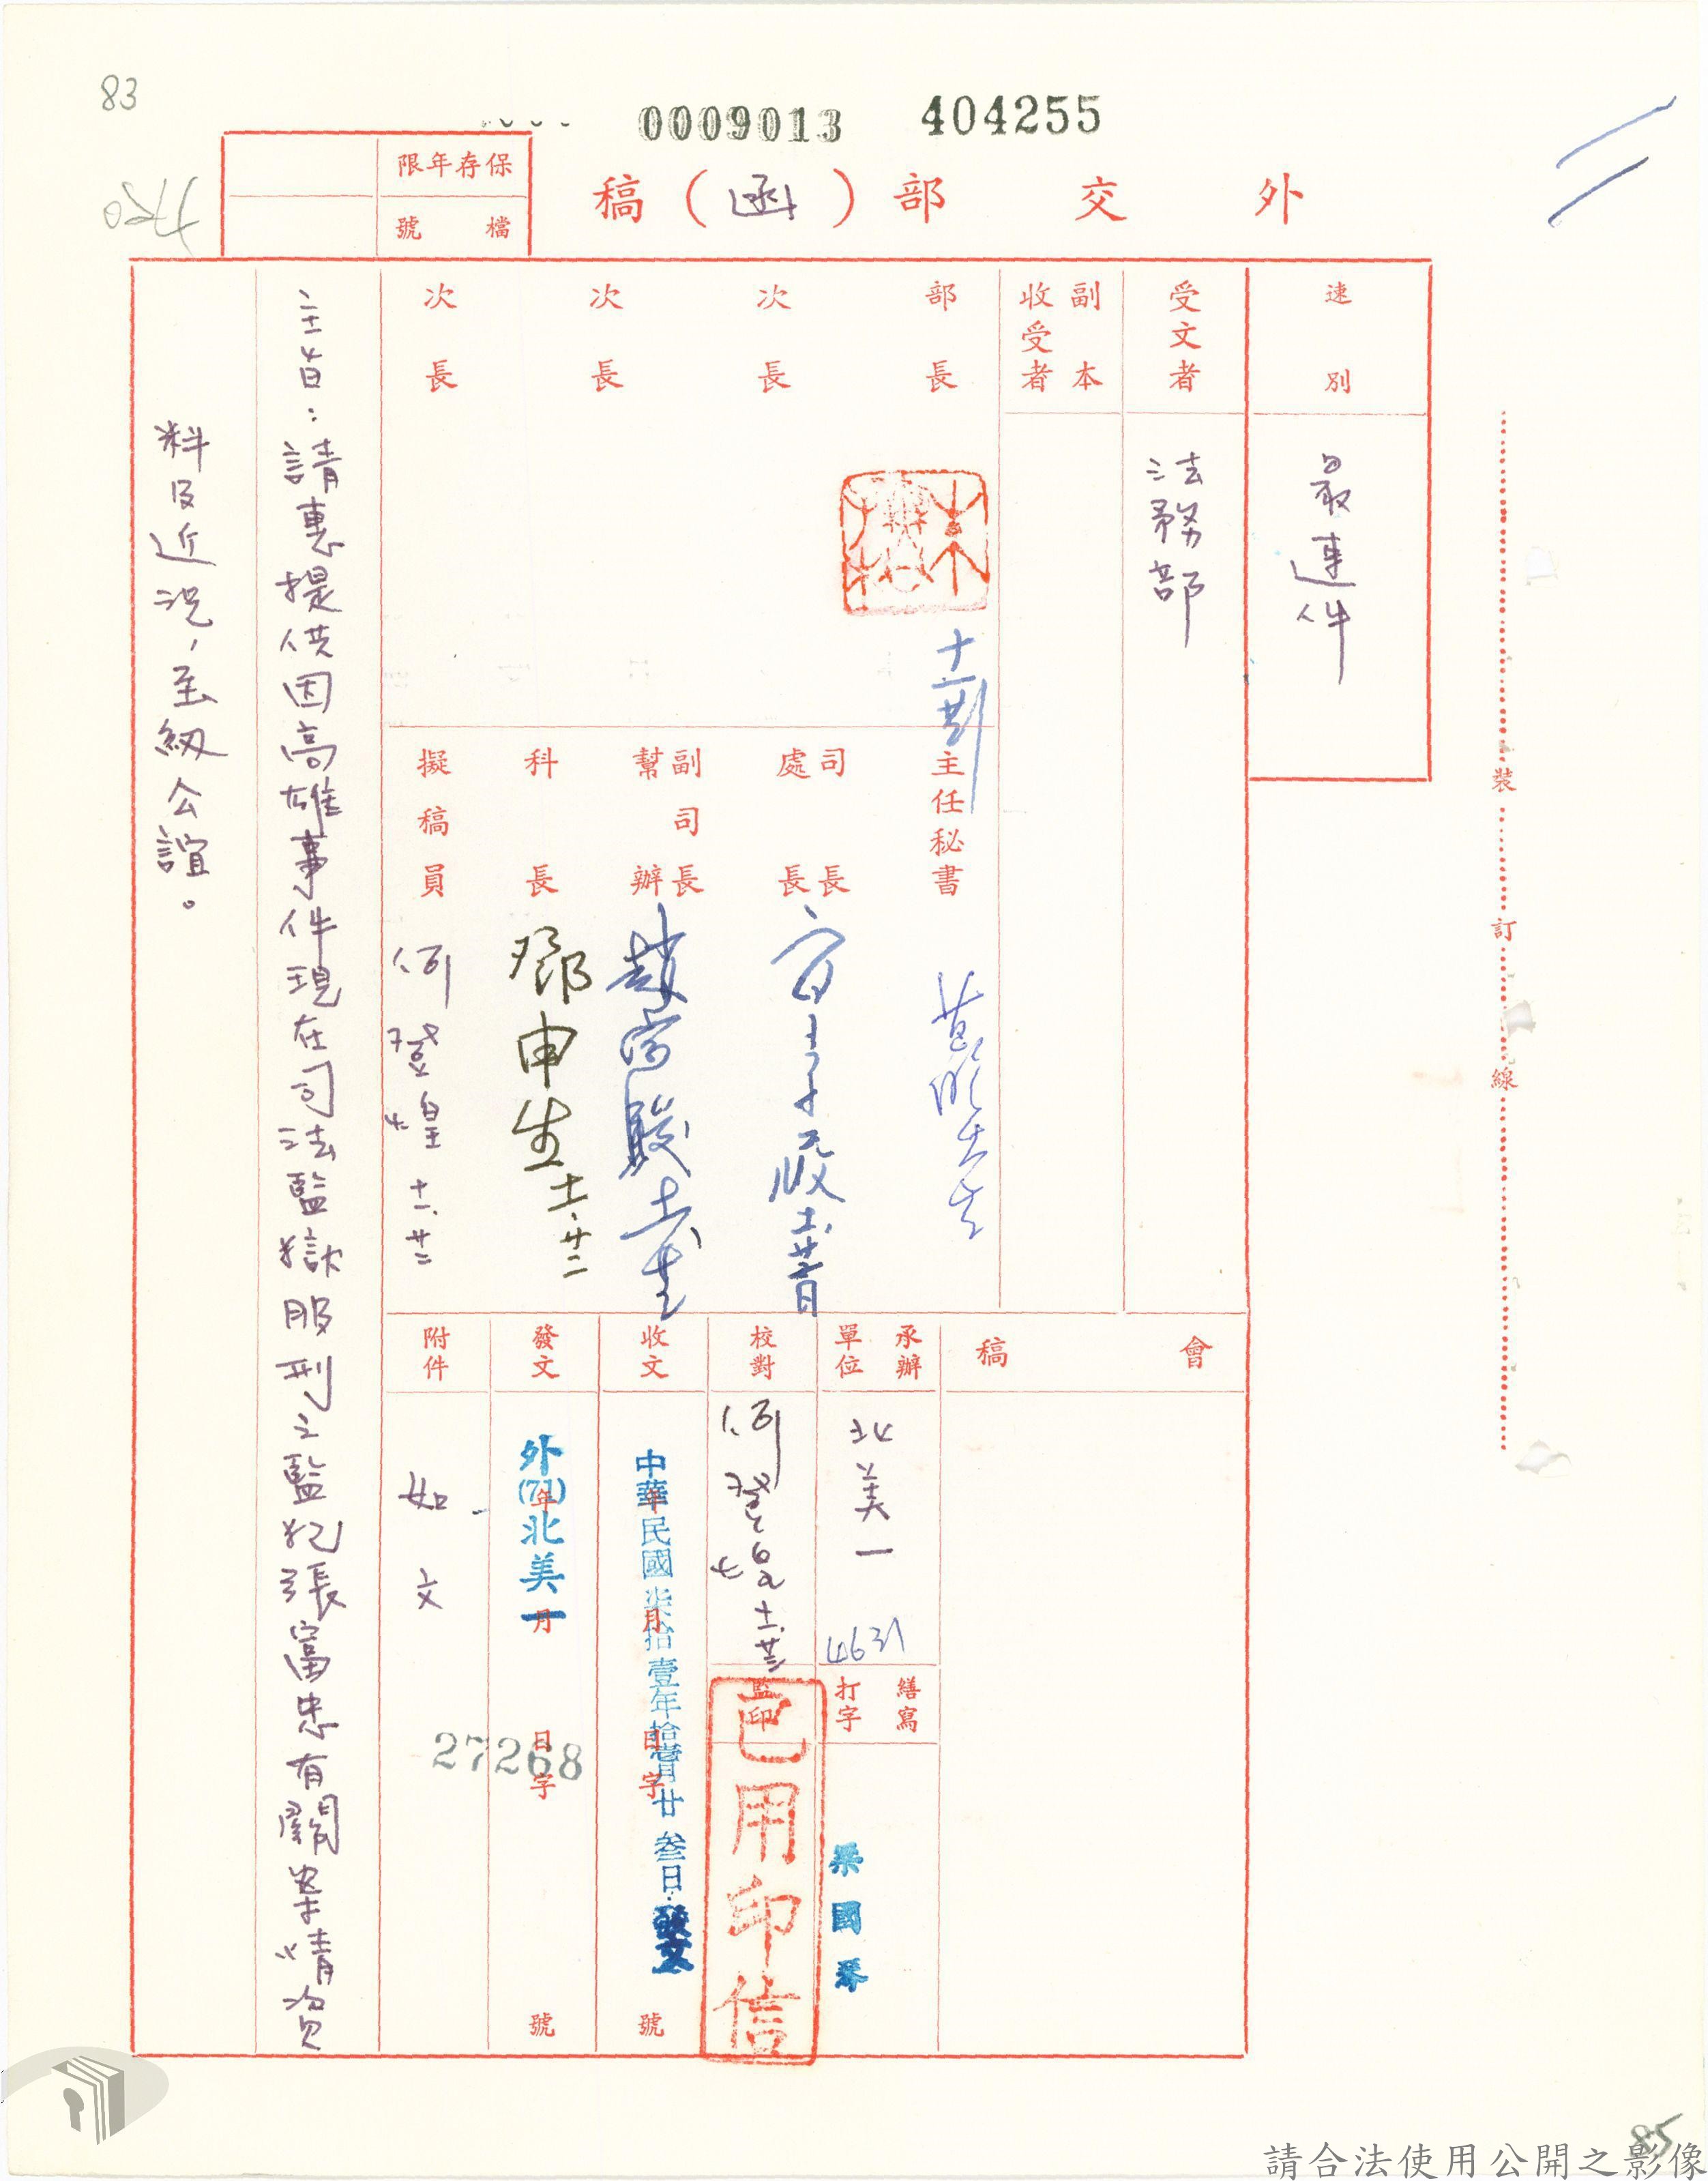 83
0009013
404255
外交部（函）稿
保存年限
檔號
速別
最速件
受文者
法務部
副本
收受者
部長
次長
次長
次長
主任秘書
司長
處長
副司長
幫辦
科長
鄧申生 十一.廿二
擬稿員
何登煌 十一.廿二
會稿
承辦單位
北美一
4631
繕寫
打字
梁國琴
校對
何登煌
監印
已用印信
收文
年月日字號
中華民國柒拾壹年拾壹月廿叁日發文
發文
年月日字號
外(71)北美一
27268
附件
如文
主旨：請惠提供因高雄事件現在司法監獄服刑之監犯張富忠有關案情資
料及近況，至紉公誼。
裝
訂
線
85
請合法使用公開之影像